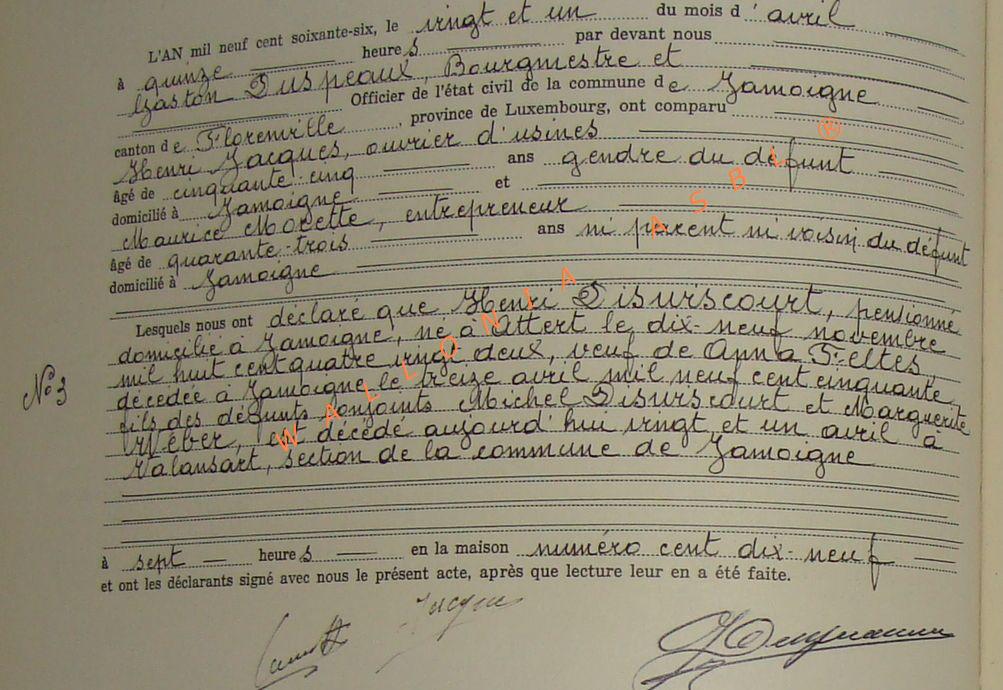 L'AN mil neuf cent soixante-six, le vingt et un du mois d'avril
à quinze heures par devant nous
Gaston Duspeaux, Bourgmestre et
Officier de l'état civil de la commune de Jamoigne
canton de Florenville, province de Luxembourg, ont comparu
Henri Jacques, ouvrier d'usines
âgé de cinquante-cinq ans gendre du défunt
domicilié à Jamoigne et
Maurice Modette, entrepreneur
âgé de quarante-trois ans ni parent ni voisin du défunt
domicilié à Jamoigne
Lesquels nous ont déclaré que Henri Disiviscourt, pensionné
domicilié à Jamoigne, né à Attert le dix-neuf novembre
mil huit cent quatre vingt deux, veuf de Anna Feltes,
décédée à Jamoigne le treize avril mil neuf cent cinquante,
N° 3
fils des défunts conjoints Michel Disiviscourt et Marguerite
Wéber, est décédé aujourd'hui vingt et un avril à
Valansart, section de la commune de Jamoigne
à sept heures en la maison numéro cent dix-neuf
et ont les déclarants signé avec nous le présent acte, après que lecture leur en a été faite.
Jacques
WALLONIA ASBL ®